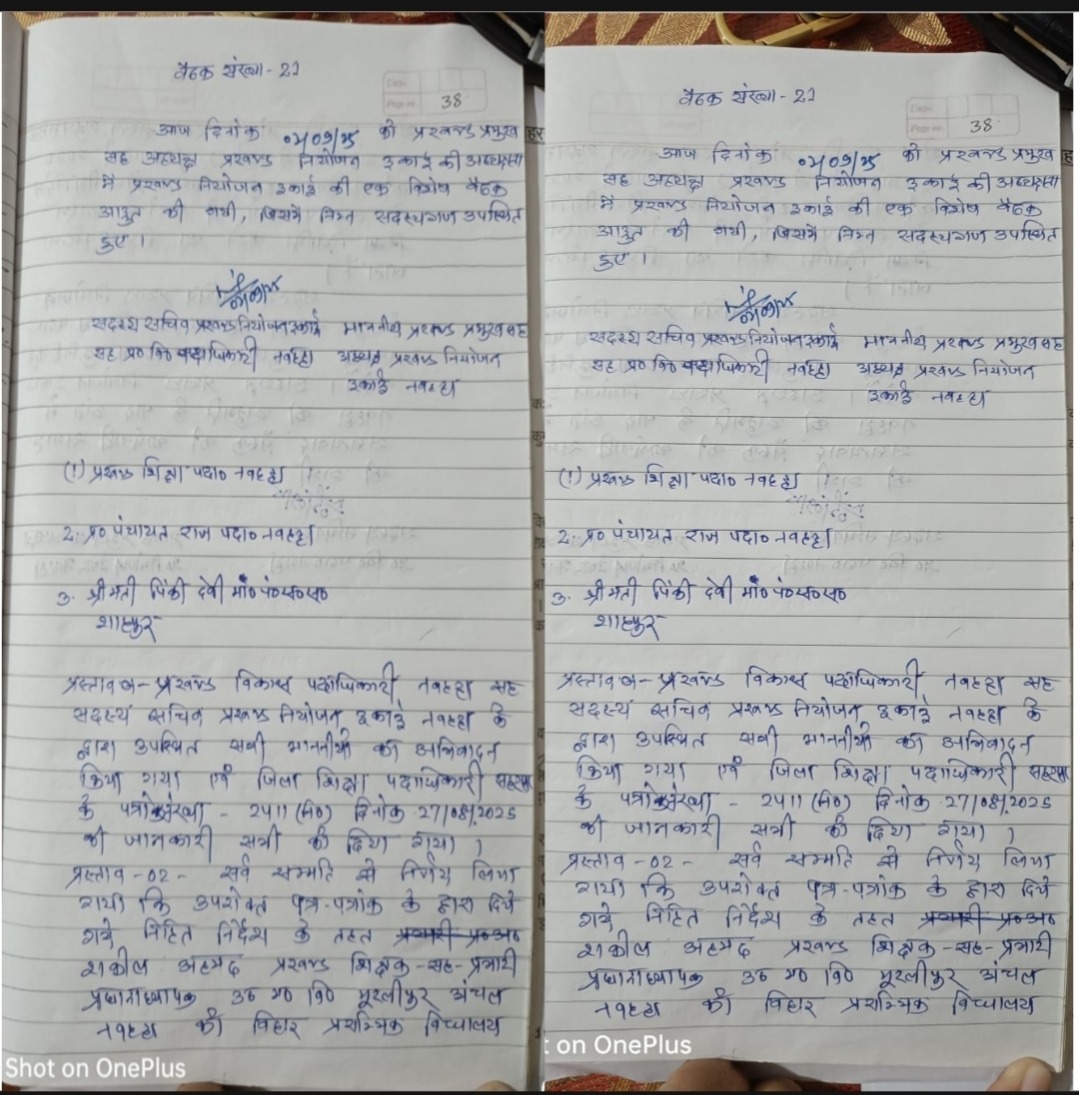 बैठक संख्या - 21
Date
Page no. 38
आज दिनांक 02/09/25 को प्रखण्ड प्रमुख
सह अध्यक्ष प्रखण्ड नियोजन इकाई की अध्यक्षता
में प्रखण्ड नियोजन इकाई की एक विशेष बैठक
आहुत की गयी, जिसमें निम्न सदस्यगण उपस्थित
हुए।
सदस्य सचिव प्रखण्ड नियोजन इकाई माननीय प्रखण्ड प्रमुख सह
सह प्र० वि० पदाधिकारी नवहट्टा अध्यक्ष प्रखण्ड नियोजन
इकाई नवहट्टा
(1) प्रखण्ड शिक्षा पदा० नवहट्टा
2. प्र० पंचायत राज पदा० नवहट्टा
3. श्रीमती पिंकी देवी मा० पं०स०स०
शाहपुर
प्रस्ताव 01 - प्रखण्ड विकास पदाधिकारी नवहट्टा सह
सदस्य सचिव प्रखण्ड नियोजन इकाई नवहट्टा के
द्वारा उपस्थित सभी माननीयों का अभिवादन
किया गया एवं जिला शिक्षा पदाधिकारी सहरसा
के पत्रांक संख्या - 2411 (मि०) दिनांक 27/08/2025
की जानकारी सभी को दिया गया।
प्रस्ताव - 02 - सर्व सम्मति से निर्णय लिया
गया कि उपरोक्त पत्र-पत्रांक के द्वारा दिये
गये निहित निर्देश के तहत
शकील अहमद प्रखण्ड शिक्षक - सह - प्रभारी
प्रधानाध्यापक उ० म० वि० मूरलीपुर अंचल
नवहट्टा को बिहार प्रारम्भिक विद्यालय
Shot on OnePlus
बैठक संख्या - 21
Date
Page no. 38
आज दिनांक 02/09/25 को प्रखण्ड प्रमुख
सह अध्यक्ष प्रखण्ड नियोजन इकाई की अध्यक्षता
में प्रखण्ड नियोजन इकाई की एक विशेष बैठक
आहुत की गयी, जिसमें निम्न सदस्यगण उपस्थित
हुए।
सदस्य सचिव प्रखण्ड नियोजन इकाई माननीय प्रखण्ड प्रमुख सह
सह प्र० वि० पदाधिकारी नवहट्टा अध्यक्ष प्रखण्ड नियोजन
इकाई नवहट्टा
(1) प्रखण्ड शिक्षा पदा० नवहट्टा
2. प्र० पंचायत राज पदा० नवहट्टा
3. श्रीमती पिंकी देवी मा० पं०स०स०
शाहपुर
प्रस्ताव 01 - प्रखण्ड विकास पदाधिकारी नवहट्टा सह
सदस्य सचिव प्रखण्ड नियोजन इकाई नवहट्टा के
द्वारा उपस्थित सभी माननीयों का अभिवादन
किया गया एवं जिला शिक्षा पदाधिकारी सहरसा
के पत्रांक संख्या - 2411 (मि०) दिनांक 27/08/2025
की जानकारी सभी को दिया गया।
प्रस्ताव - 02 - सर्व सम्मति से निर्णय लिया
गया कि उपरोक्त पत्र-पत्रांक के द्वारा दिये
गये निहित निर्देश के तहत
शकील अहमद प्रखण्ड शिक्षक - सह - प्रभारी
प्रधानाध्यापक उ० म० वि० मूरलीपुर अंचल
नवहट्टा को बिहार प्रारम्भिक विद्यालय
t on OnePlus